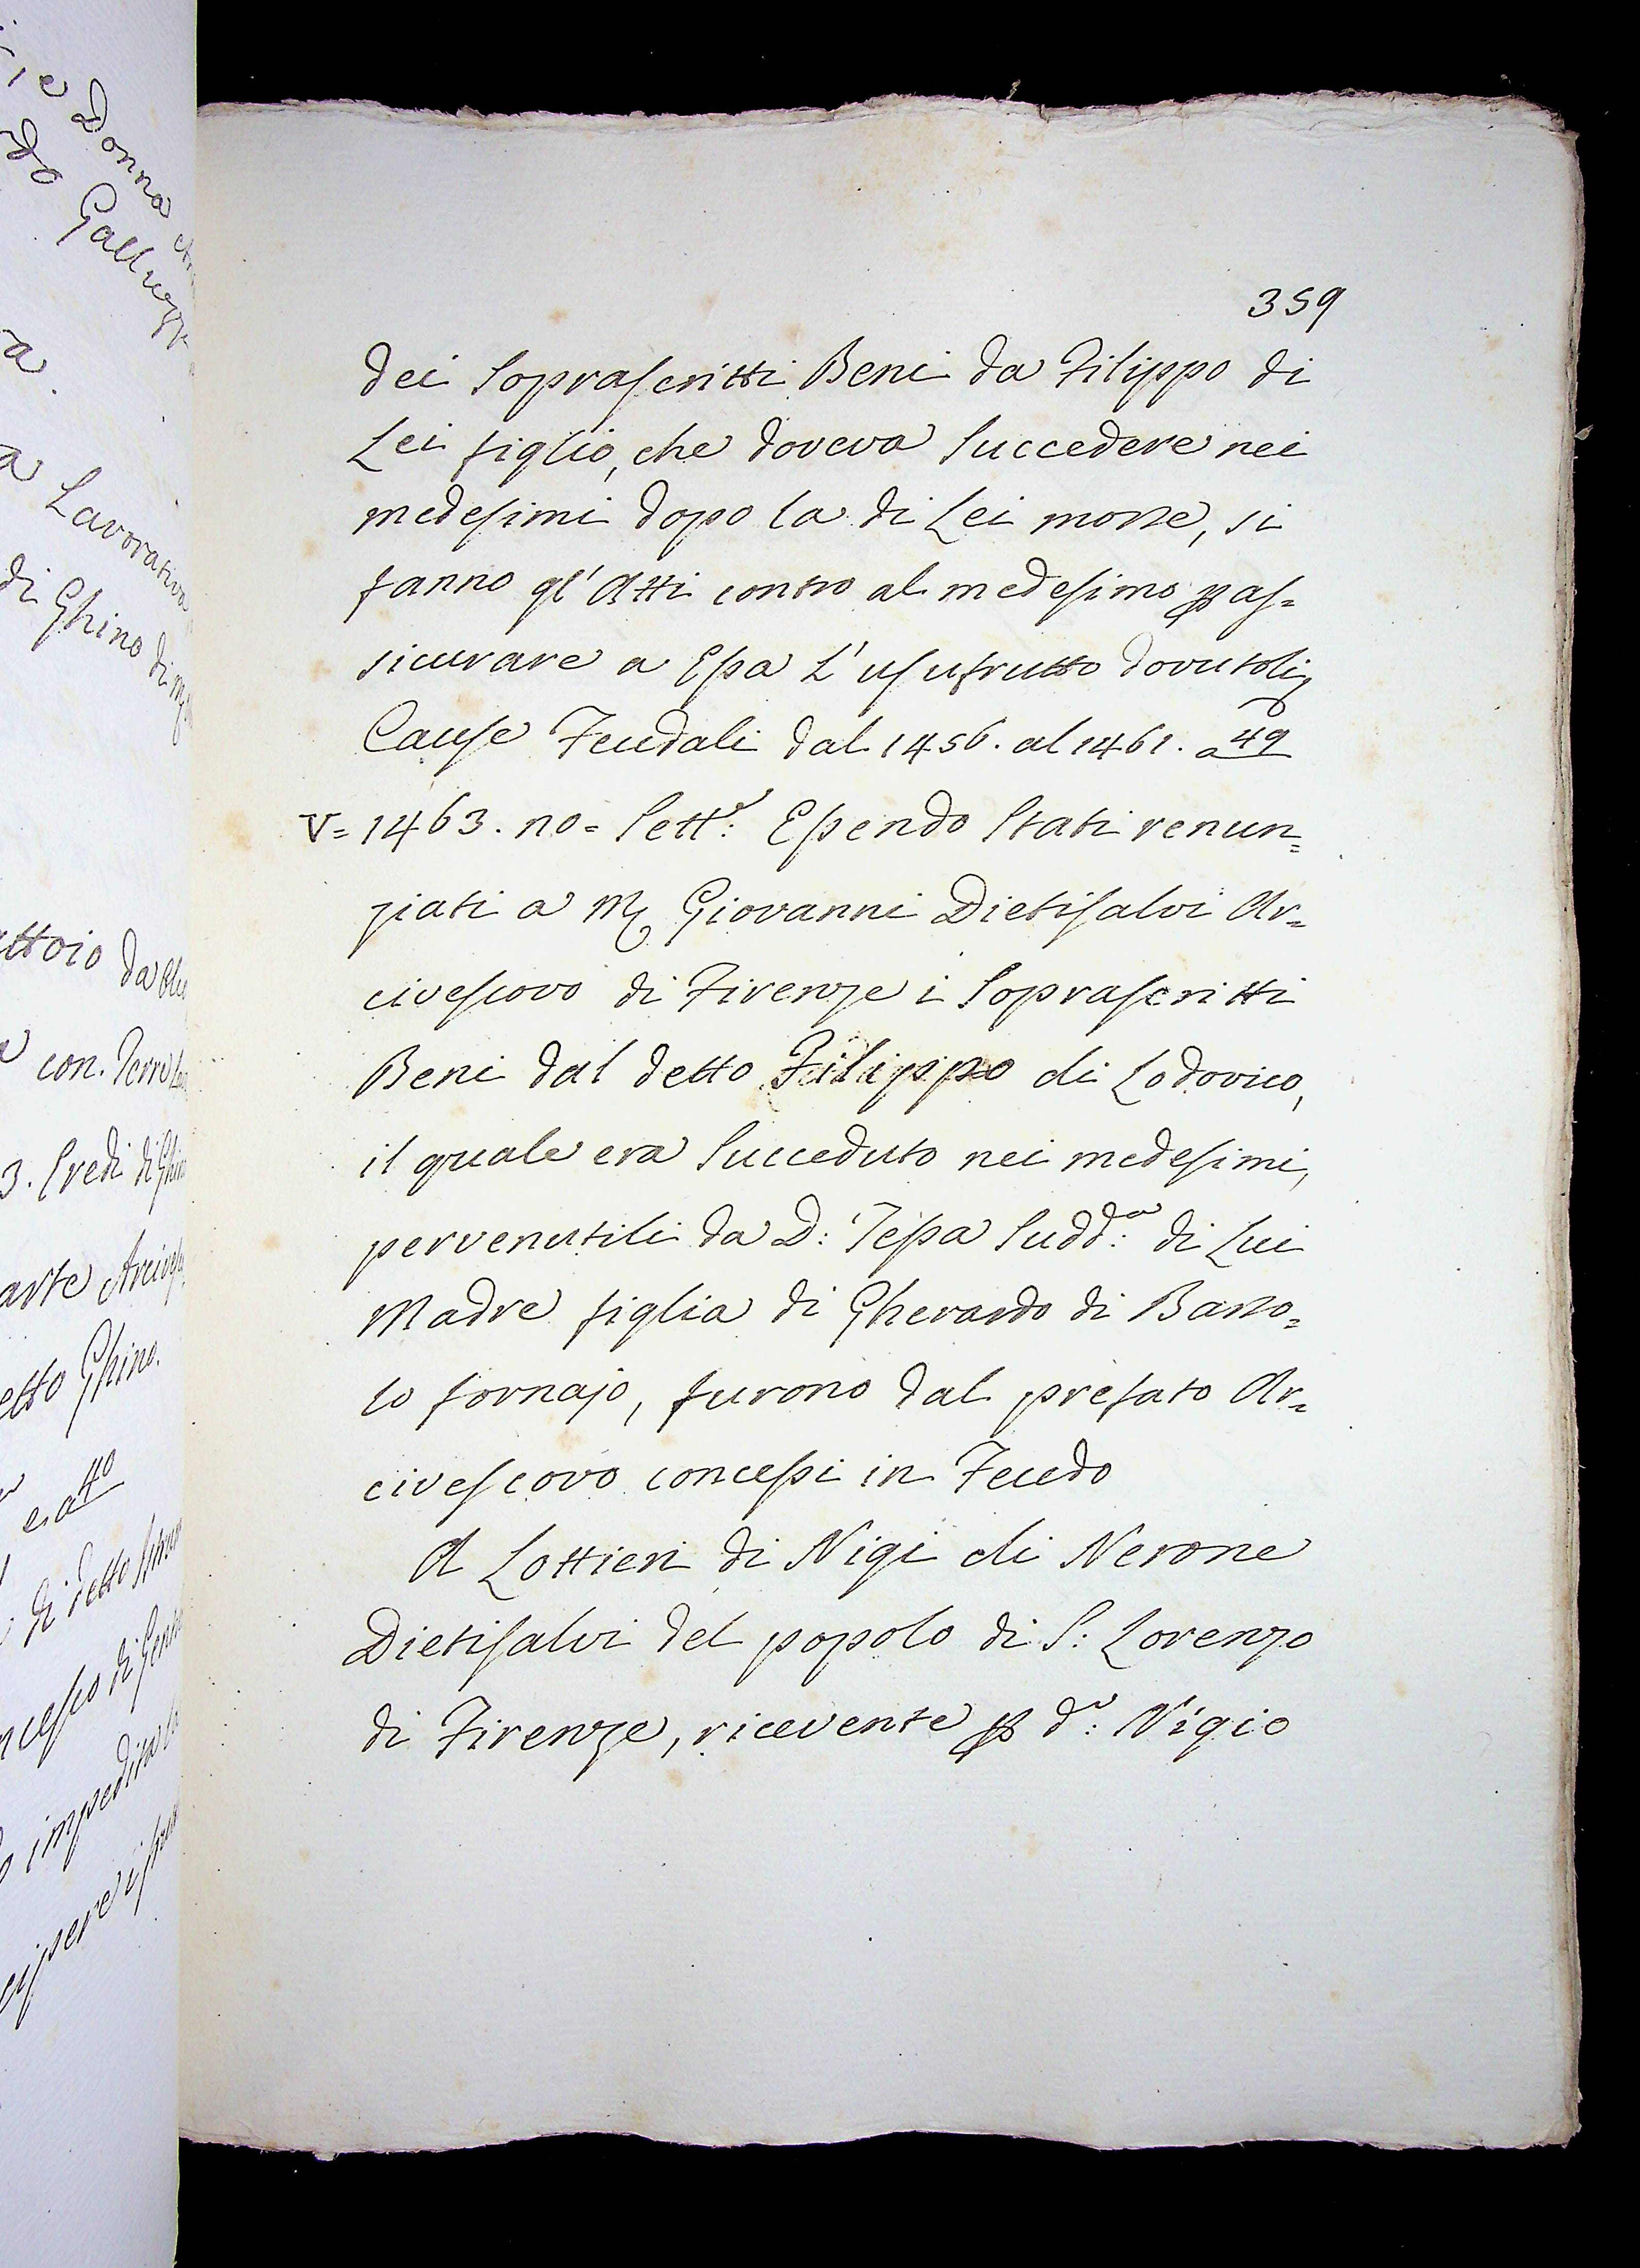 359
dei Soprascritti Beni da Filippo di
Lei figlio, che doveva Succedere nei
medesimi dopo la di Lei morte, si
fanno gl'Atti contro al medesimo p as=
sicurare a Essa L'usufrutto dovutoli,
Cause Feudali dal 1456. al 1461. a 49
V= 1463. no= Sett.e: Essendo Stati renun=
ziati a M Giovanni Dietisalvi Ar=
civescovo di Firenze i Soprascritti
Beni dal detto Filippo di Lodovico,
il quale era Succeduto nei medesimi,
pervenutili da D: Tessa Sudd.a: di Lui
Madre figlia di Gherardo di Barto=
lo fornajo, furono dal prefato Ar=
civescovo concessi in Feudo
A Lottieri di Nigi di Nerone
Dietisalvi del popolo di S: Lorenzo
di Firenze, ricevente p d.o: Nigio
e Donna
do Galluzz
a Lavorativa
di Ghino di
ttoio da
con. Terre
3. Credi di Ghin
arte Arcives
etto Ghino.
e a 40
di detto
ncesco di
impedita